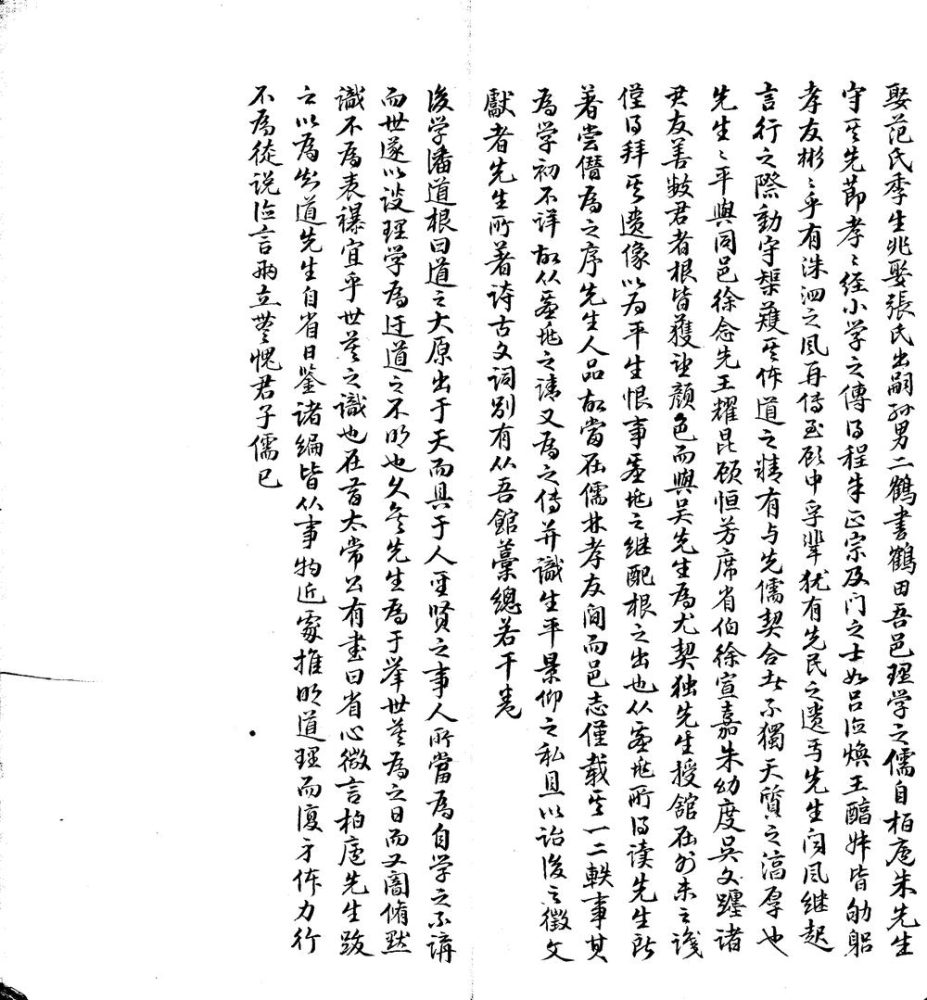 娶范氏季生兆娶張氏出嗣孫男二鶴書鶴田吾邑理学之儒自柏廬朱先生
守其先節孝〻経小学之傳得程朱正宗及門之士如呂德煥王醕妹皆劬躬
孝友彬〻乎有洙泗之風再傳至顧中孚輩犹有先民之遺焉先生闻風継起
言行之際動守榘矱其体道之精有与先儒契合者不獨天質之淳厚也
先生〻平與同邑徐念先王耀昆顾恒芳席省伯徐宣嘉朱幼度吳文躔諸
君友善數君者根皆獲望顔色而與吴先生為尤契独先生授舘在外未之識
僅得拜其遺像以为平生恨事之継配根之出也从所得读先生所
著尝僭為之序先生人品故當在儒林孝友间而邑志僅载其一二軼事其
為学初不详故从之请又為之傳并識生平景仰之私且以诒後之徵文
獻者先生所著诗古文词别有从吾館藁總若干卷
後学潘道根曰道之大原出于天而具于人聖贤之事人所當為自学之不講
而世遂以設理学為迂道之不明也久矣先生為于举世莫為之日而又闇脩默
識不為表襮宜乎世莫之識也在昔太常公有書曰省心微言柏廬先生跋
之以為知道先生自省日鉴诸编皆从事物近處推明道理而復身体力行
不為徒说德言两立無愧君子儒已